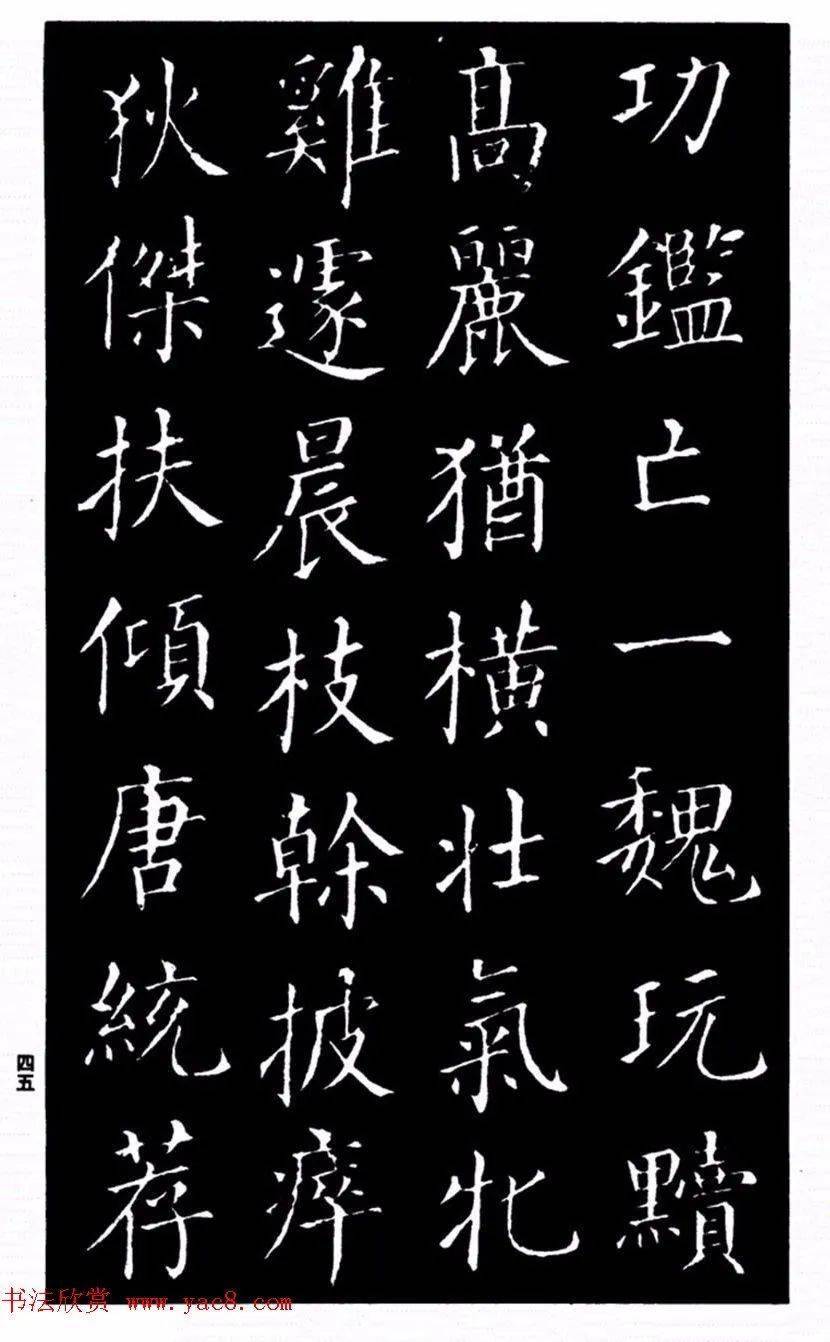 功鑑亡一魏玩黷
高麗猶橫壯氣牝
雞遽晨枝幹披瘁
狄傑扶傾唐統荐
四五
书法欣赏 www.yac8.com